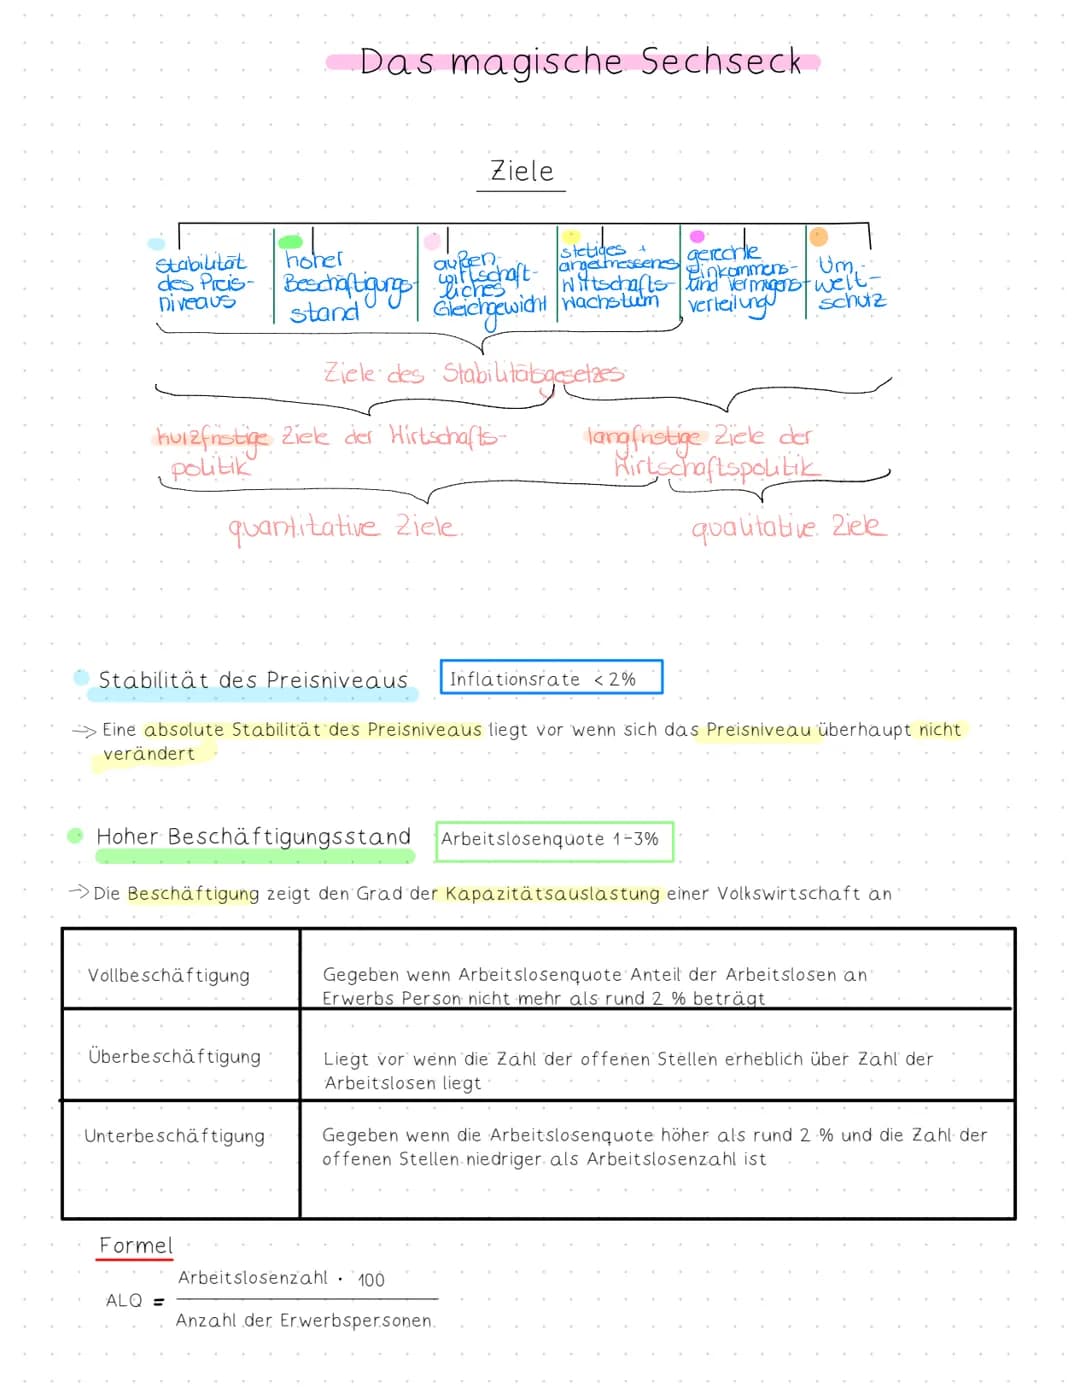 Das magische Sechseck
Ziele
Stabilität
des Preis-
niveaus
hoher
Beschäftigungs-
stand
außen-
wirtschaft-
liches
Gleichgewicht
stetiges +
angemessenes
Wirtschafts-
wachstum
gerechte
Einkommens-
und Vermögens-
verteilung
Um-
welt-
schutz
Ziele des Stabilitätsgesetzes
kurzfristige Ziele der Wirtschafts-
politik
langfristige Ziele der
Wirtschaftspolitik
quantitative Ziele
qualitative Ziele
Stabilität des Preisniveaus
Inflationsrate < 2%
→ Eine absolute Stabilität des Preisniveaus liegt vor wenn sich das Preisniveau überhaupt nicht
verändert
Hoher Beschäftigungsstand
Arbeitslosenquote 1-3%
→ Die Beschäftigung zeigt den Grad der Kapazitätsauslastung einer Volkswirtschaft an
Vollbeschäftigung
Gegeben wenn Arbeitslosenquote Anteil der Arbeitslosen an
Erwerbs Person nicht mehr als rund 2 % beträgt
Überbeschäftigung
Liegt vor wenn die Zahl der offenen Stellen erheblich über Zahl der
Arbeitslosen liegt
Unterbeschäftigung
Gegeben wenn die Arbeitslosenquote höher als rund 2 % und die Zahl der
offenen Stellen niedriger als Arbeitslosenzahl ist
Formel
Arbeitslosenzahl · 100
ALQ =
Anzahl der Erwerbspersonen